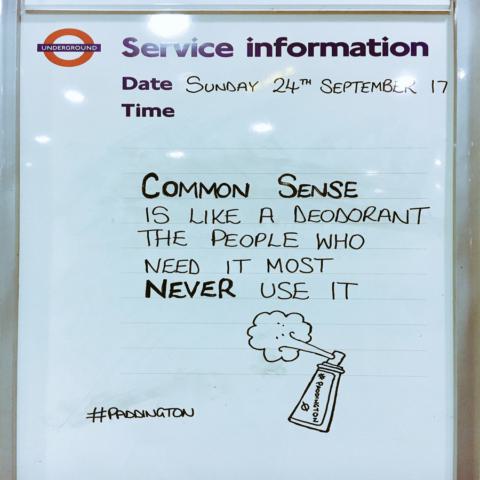 UNDERGROUND
Service information
Date SUNDAY 24TH SEPTEMBER 17
Time
COMMON SENSE
IS LIKE A DEODORANT
THE PEOPLE WHO
NEED IT MOST
NEVER USE IT
#PADDINGTON
#PADDINGTON